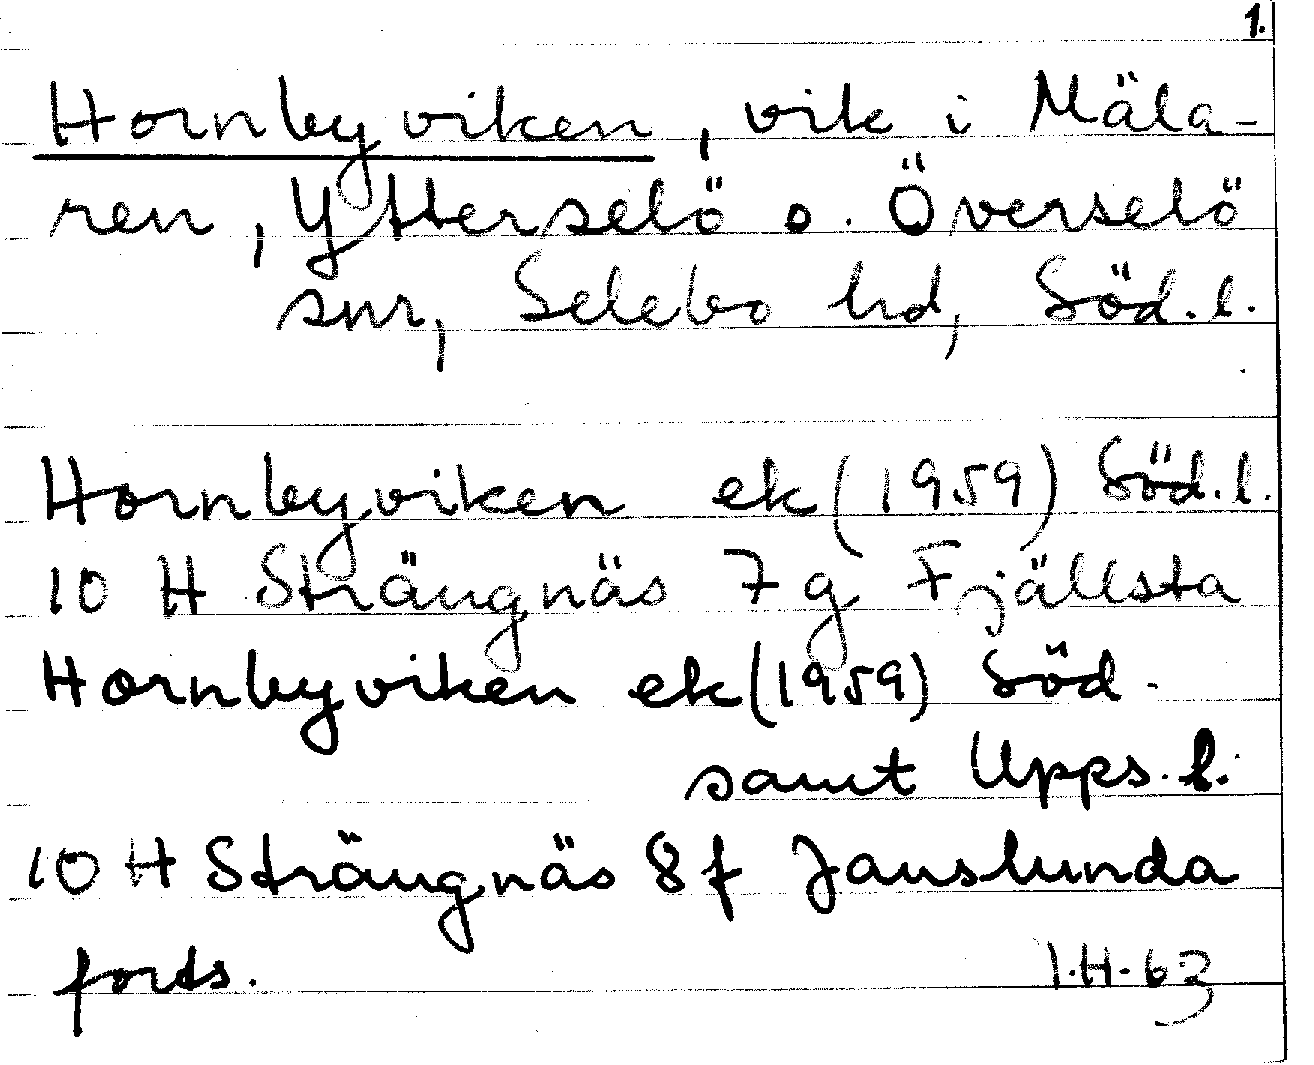 1.
Hornbyviken, vik i Mäla-
ren, Ytterselö o. Överselö
snr, Selebo hd, Söd.l.
Hornbyviken ek (1959) Söd.l.
10 H Strängnäs 7 g Fjällsta
Hornbyviken ek (1959) Söd.
samt Upps.l.
10 H Strängnäs 8 f Janslunda
forts. I.H. 63